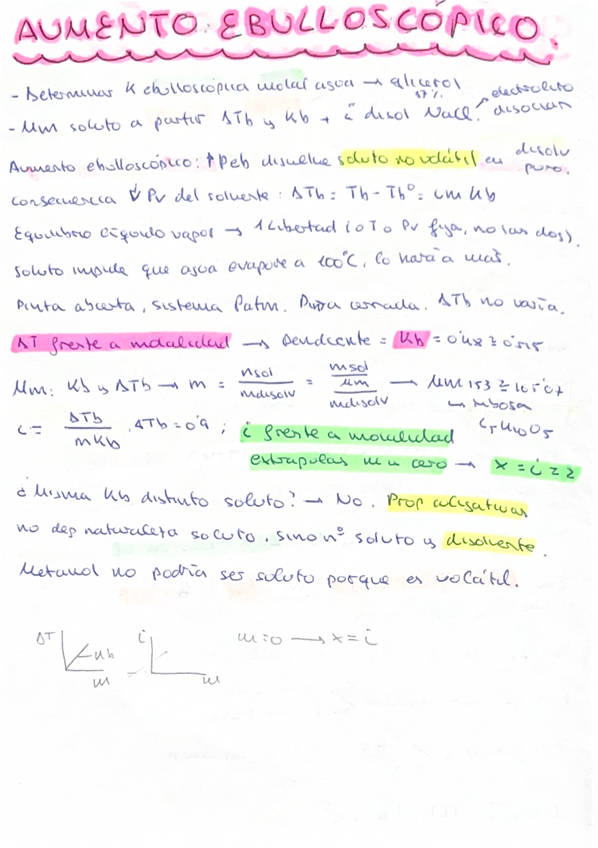 AUMENTO EBULLOSCÓPICO.
- Determinar K ebulloscópica molal agua → glicerol
17%
- Mm soluto a partir ΔTb y Kb + i disol NaCl. ↗ electrolito disocian
Aumento ebulloscópico: ↑Peb disuelve soluto no volátil en disolv puro.
consecuencia ↓ Pv del solvente: ΔTb = Tb - Tb° = i m Kb
Equilibrio líquido vapor → 1 libertad (o T o Pv fija, no las dos).
Soluto impide que agua evapore a 100°C, lo hará a más.
Pinta abierta, sistema Patm. Pinza cerrada. ΔTb no varía.
ΔT frente a molalidad → Pendiente = Kb = 0'48 ≥ 0'515
Mm: Kb y ΔTb → m = nsol / mdisolv = msol / Mm / mdisolv → Mm 153 ≥ 150'07
↳ ribosa
C5H10O5
i = ΔTb / m Kb . ΔTb = 0'9 ; i frente a molalidad
extrapolas m a cero → x = i = 2
¿Misma Kb distinto soluto? → No. Prop coligativas
no dep naturaleza soluto, sino nº soluto y disolvente.
Metanol no podría ser soluto porque es volátil.
ΔT Kb m i m m=0 → x = i